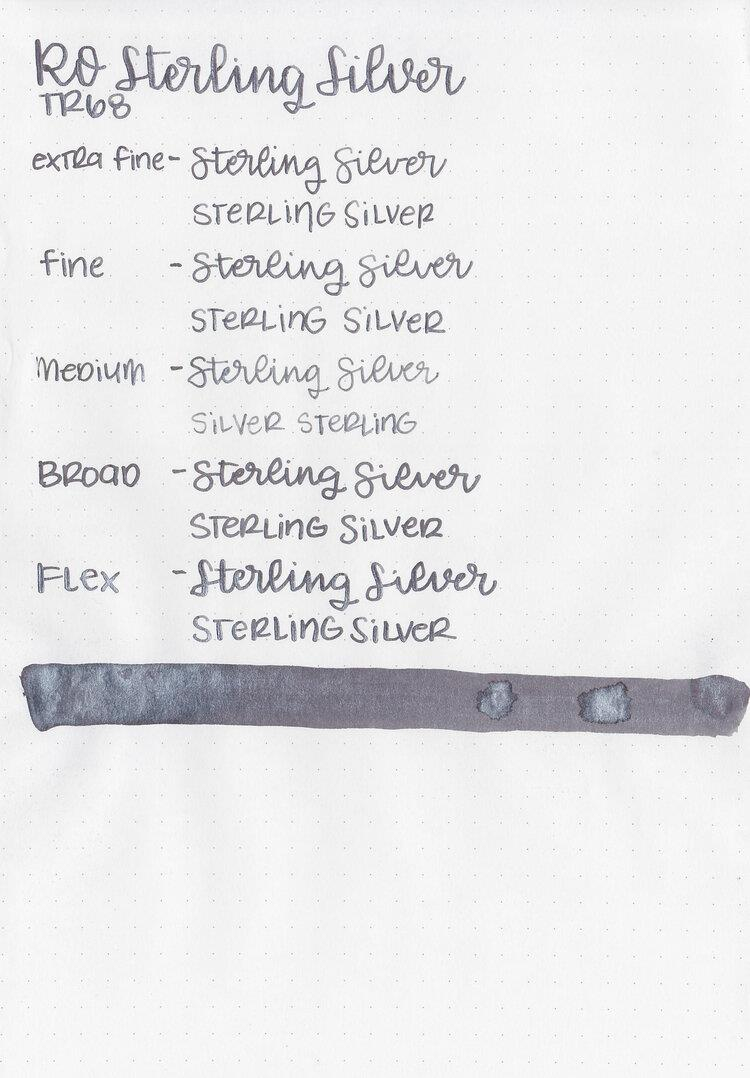 RO Sterling Silver
TR68
extra fine - Sterling Silver
STERLING SILVER
fine - Sterling Silver
STERLING SILVER
Medium - Sterling Silver
SILVER STERLING
BROAD - Sterling Silver
STERLING SILVER
FLex - Sterling Silver
STERLING SILVER